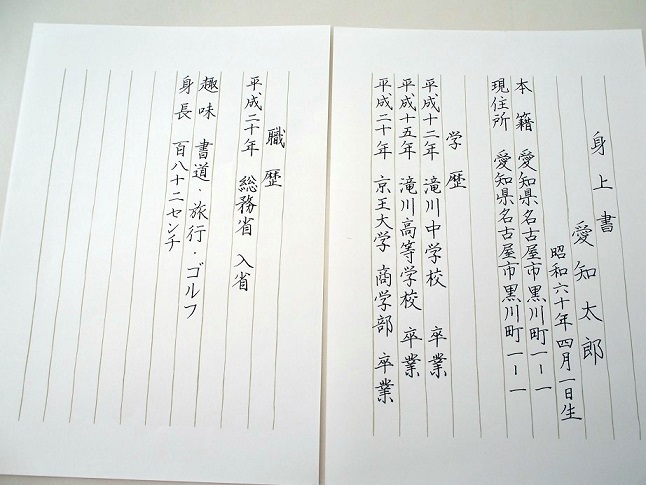 身上書
愛知太郎
昭和六十年四月一日生
本籍 愛知県名古屋市黒川町一ー一
現住所 愛知県名古屋市黒川町一ー一
学歴
平成十二年 滝川中学校 卒業
平成十五年 滝川高等学校 卒業
平成二十年 京王大学 商学部 卒業
職歴
平成二十年 総務省 入省
趣味 書道・旅行・ゴルフ
身長 百八十二センチ